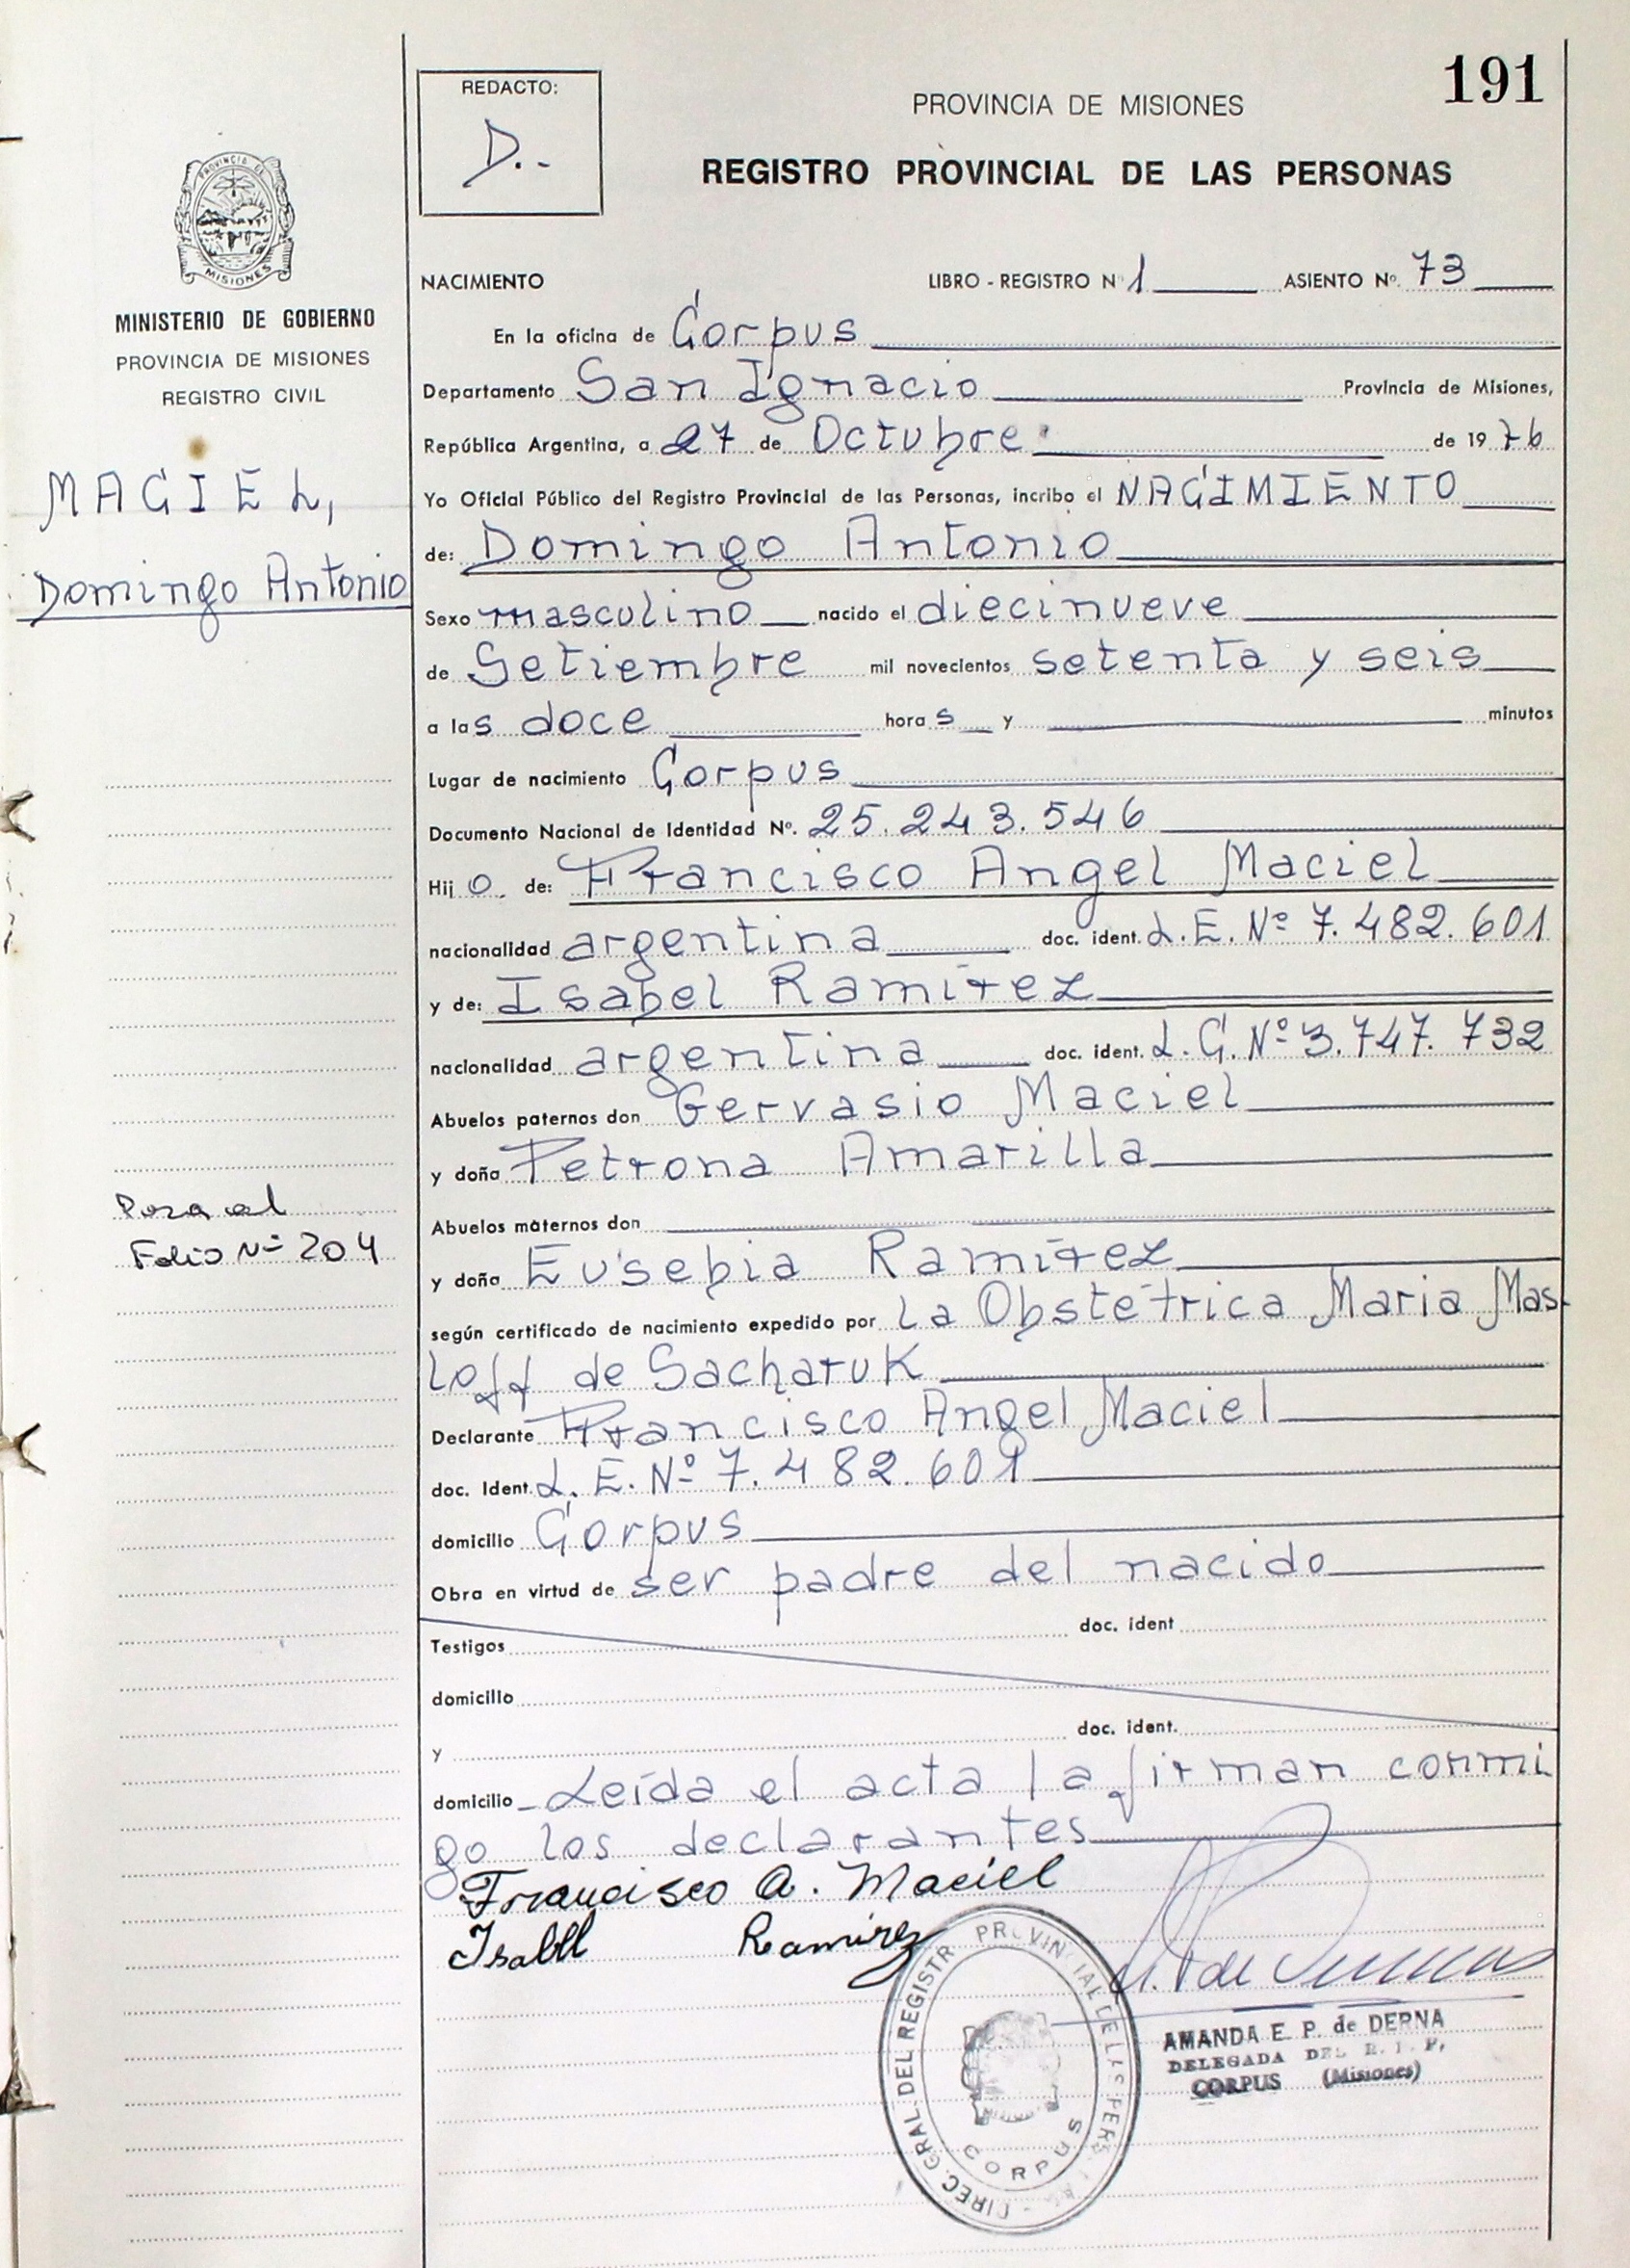 191
REDACTO:
D..-
PROVINCIA DE MISIONES
REGISTRO PROVINCIAL DE LAS PERSONAS
PROVINCIA DE
MISIONES
MINISTERIO DE GOBIERNO
PROVINCIA DE MISIONES
REGISTRO CIVIL
MACIEL,
Domingo Antonio
Para al
Folio Nº 204
NACIMIENTO LIBRO - REGISTRO Nº 1 ASIENTO Nº 73
En la oficina de Corpus
Departamento San Ignacio Provincia de Misiones,
República Argentina, a 27 de Octubre de 1976
Yo Oficial Público del Registro Provincial de las Personas, incribo el NACIMIENTO
de: Domingo Antonio
Sexo masculino nacido el diecinueve
de Setiembre mil novecientos setenta y seis
a las doce horas y minutos
Lugar de nacimiento Corpus
Documento Nacional de Identidad Nº. 25.243.546
Hijo. de: Francisco Angel Maciel
nacionalidad argentina doc. ident. L.E. Nº 7.482.601
y de: Isabel Ramírez
nacionalidad argentina doc. ident. L.C. Nº 3.747.732
Abuelos paternos don Gervasio Maciel
y doña Petrona Amarilla
Abuelos maternos don
y doña Eusebia Ramírez
según certificado de nacimiento expedido por la Obstétrica Maria Mas-
loff de Sacharuk
Declarante Francisco Angel Maciel
doc. Ident. L.E. Nº 7.482.601
domicilio Corpus
Obra en virtud de ser padre del nacido
Testigos doc. ident
domicilio
y doc. ident.
domicilio - Leída el acta la firman conmi
go los declarantes
Francisco A. Maciel
Isabel Ramirez
DIREC. GRAL. DEL REGISTR PROVINCIAL DE LAS PERS.
CORPUS
AMANDA E. P. de DERNA
DELEGADA DEL R. P. P.
CORPUS (Misiones)